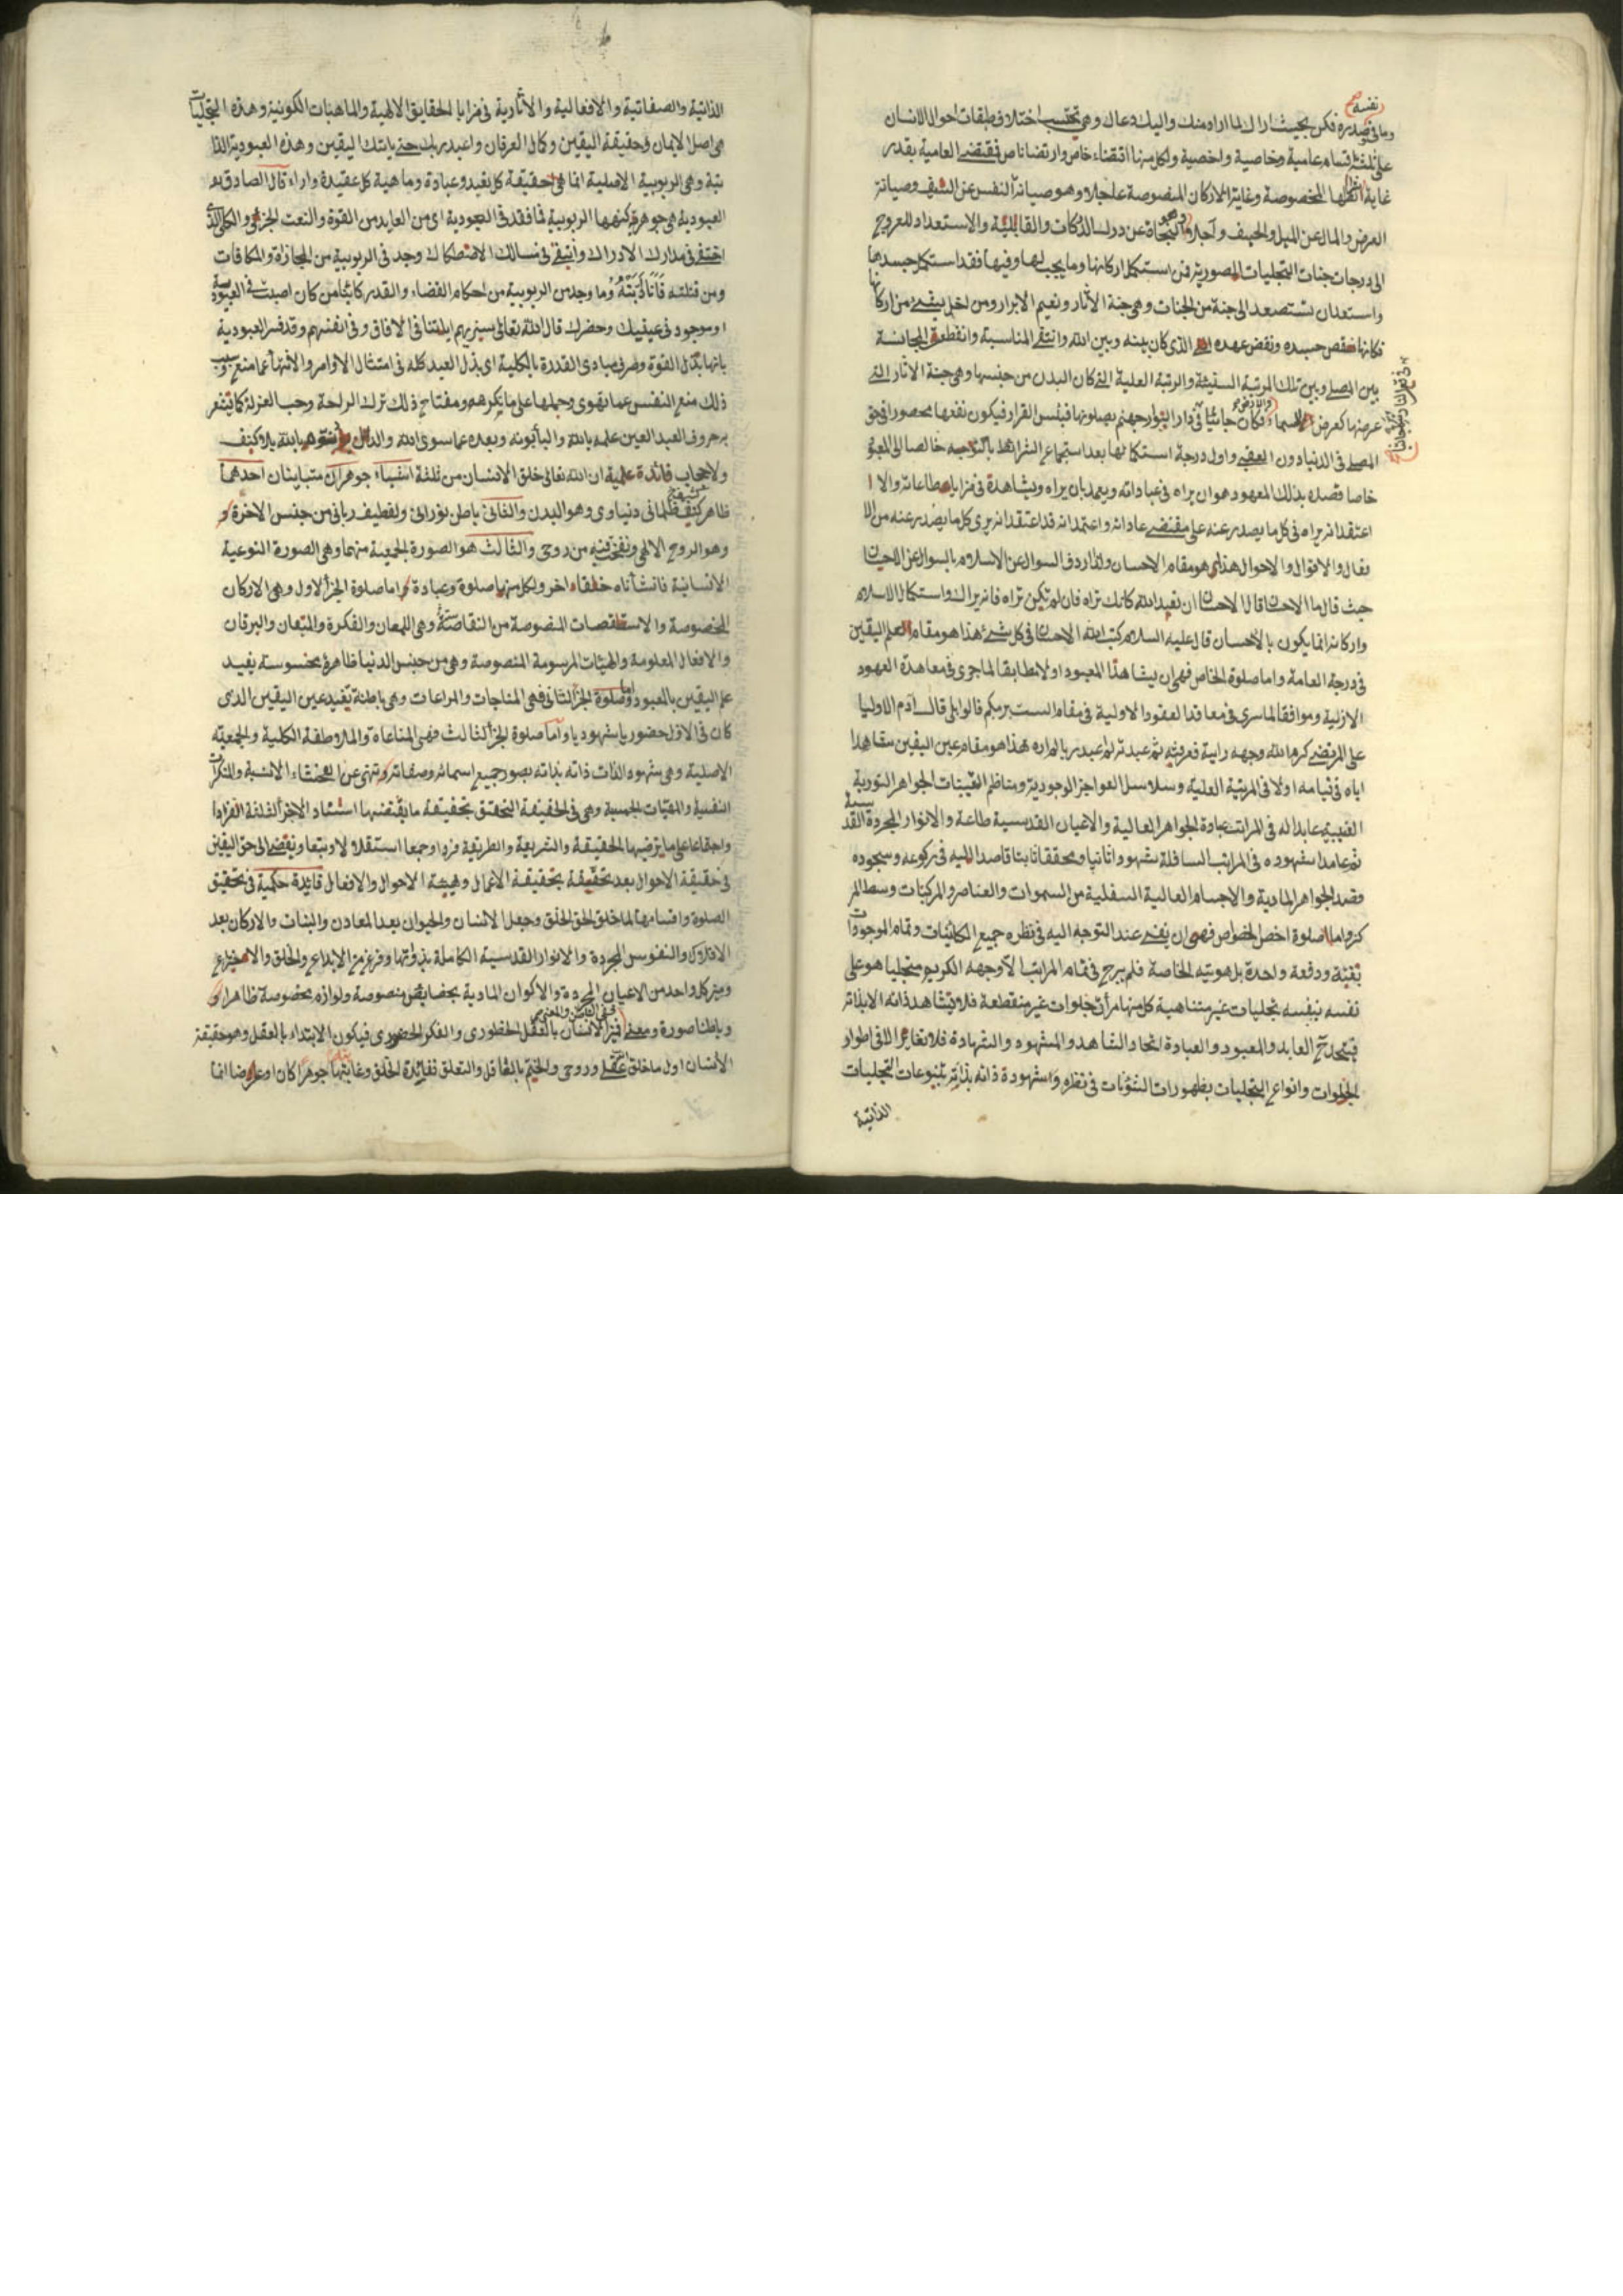 نفسه
وما في صدره فكن بحيث اراك لما اراد منك واليك دعاك وهي تختلف بحسب اختلاف طبقات احوال الانسان
على ثلثة اقسام عامية وخاصية واخصية ولكل منها اقتضاء خاص وارتضاء ناص فمقتضى العامية بقدر
غاية افعالها المخصوصة وغاية الاركان المنصوصة عاجلا وهو صيانة النفس عن السيف وصيانة
العرض والمال عن الميل والحيف وآجلا وهو النجاة عن دركات والقابلية والاستعداد للعروج
الى درجات جنات التجليات الصورية فمن استكمل اركانها وما يجب لها وفيها فقد استكمل جسدها
واستعدان تستصعد الى جنة من الجنات وهي جنة الآثار ونعيم الابرار ومن اخل بشئ من اركانها
فكانما نقص جسده ونقض عهده الذي كان بينه وبين الله وانتفى المناسبة وانقطعت المجانسة
بين المصلي وبين تلك المرتبة السنية والرتبة العلية التي كان البدن من جنسها وهي جنة الآثار التي
عرضها كعرض السماء والارض فكان جاثيا في دار البوار جهنم يصلونها فبئس القرار فيكون نفعها محصورا في حق
المصلي في الدنيا دون العقبى واول درجة استكمالها بعد استجماع الشرائط بالتوجه خالصا الى المعبود
خاصا قصده بذلك المعهود هو ان يراه في عباداته ويعمد بان يراه ويشاهده في مزايا طاعاته والا
اعتقد انه يراه في كل ما يصدر عنه على مقتضى عاداته واعتمد انه قد اعتقد انه يرى كل ما يصدر عنه من الا
فعال والاقوال والاحوال هذا هو مقام الاحسان ولذا ردف السوال عن الاسلام بالسوال عن الاحسان
حيث قال ما الاحسان قال الاحسان ان تعبد الله كانك تراه فان لم تكن تراه فانه يراك واستكمال الاسلام
واركانه انما يكون بالاحسان قال عليه السلام كتب الله الاحسان في كل شئ هذا هو مقام العلم اليقين
في درجة العامة واما صلوة الخاص فهي ان يشاهد المعبود اولا مطابقا لما جرى في معاهدة العهود
الازلية وموافقا لما سرى في معاقد العقود الاولية في مقام الست بربكم قالوا بلى قال آدم الاوليا
على المرتضى كرم الله وجهه رايته فعرفته ثم عبدته لم اعبد ربا لم اره هذا هو مقام عين اليقين مشاهدا
اياه في قيامه اولا في المرتبة العلية وسلاسل الوجودية ومناظم التعينات الجواهر النورية
الغيبية عابدا له في المراتب عبادة الجواهر العالية والاعيان القدسية طاعة والانوار المجردة القدسية
ثم عامدا شهوده في المراتب السافلة شهودا ثانيا ومحققا ثابتا قاصدا اليه في ركوعه وسجوده
قصد الجواهر المادية والاجسام العالية السفلية من السموات والعناصر والمركبات وسط المر
كز واما صلوة اخص الخصوص فهي ان يفنى عند التوجه اليه في نظره جميع الكائنات وتمام الموجودات
بغتة ودفعة واحدة بل هويته الخاصة فلم يبرح في تمام المراتب الا وجهه الكريم متجليا هو على
نفسه بنفسه بتجليات غير متناهية كل منها مرآت جلوات غير منقطعة فلا يشاهد ذاته الا بذاته
فيتحد ح العابد والمعبود والعبادة اتحاد الشاهد والمشهود والشهادة فلا تغاير الا في اطوار
الجلوات وانواع التجليات بظهورات الشؤنات في نظره واشهوده ذاته بذاته بتنوعات التجليات
الذاتية
الذاتية والصفاتية والافعالية والآثارية في مزايا الحقايق الالهية والماهيات الكونية وهذه التجليات
هي اصل الايمان وحقيقة اليقين وكمال العرفان واعبد ربك حتى ياتيك اليقين وهذه العبودية الذا
تية وهي الربوبية الاصلية انما هي حقيقة كل تعبد وعبادة وماهية كل عقيدة واراء قال الصادق
العبودية هي جوهرة كنهها الربوبية فما فقد في العبودية اي من العابد من القوة والنعت الجزئي والكلي الذي
اختفى في مدارك الادراك وانتفى في مسالك الاصطكاك وجد في الربوبية من المجازاة والمكافات
ومن قتلته فانا ديته وما وجد من الربوبية من احكام القضاء والقدر كائنا من كان اصيب في العبودية
او موجود في عينيك وحضرتك قال الله تعالى سنريهم اياتنا في الافاق وفي انفسهم وقد فسر العبودية
بانها بذل القوة وصرف مبادى القدرة بالكلية اي بذل العبد كله في امتثال الاوامر والانتهاء عما منع وسبب
ذلك منع النفس عما تهوى وحملها على ما تكرهه ومفتاح ذلك ترك الراحة وحب العزلة كما يشعر
به حروف العبد العين علمه بالله والباء بونه وبعده عما سوى الله والدال دنوه بالله بلا كيف
ولا حجاب فائدة علمية ان الله تعالى خلق الانسان من ثلثة اشياء جوهران متباينان احدهما
ظاهر كثيف ظلماني دنياوي وهو البدن والثاني باطن نوراني ولطيف رباني من جنس الاخرة
وهو الروح الالهي ونفخت فيه من روحي والثالث هو الصورة الجمعية منهما وهي الصورة النوعية
الانسانية فانشأناه خلقا اخر ولكل منها صلوة وعبادة اما صلوة الجزء الاول وهي الاركان
المخصوصة والاستقصات المنصوصة وهي اللمعان والفكرة واللمعان والبرقان
والافعال المعلومة والهيئات المرسومة المنصوصة وهي من جنس الدنيا ظاهرة محسوسة يفيد
علم اليقين بالمعبود واما صلوة الجزء الثاني فهي المناجات والمراعات وهي باطنة تفيد عين اليقين الذي
كان في الاول حضوريا شهوديا واما صلوة الجزء الثالث فهي المناغاة والملاطفة الكلية والجمعية
الاصلية وهي شهود الذات ذاته بذاته بصور جميع اسمائه وصفاته وتنهى عن الفحشاء الانسية والمنكرات
النفسية والهيئات الجسمية وهي في الحقيقة التحقق بحقيقة ما يقتضيها استناد الاجزاء الثلثة انفرادا
واجتماعا على ما ترضيها الحقيقة والشريعة والطريقة فردا وجمعا استقلالا وتبعا ويفضى الى حق اليقين
في حقيقة الاحوال بعد تحققه بحقيقة الاعمال وهيئة الاحوال والافعال فائدة حكمية في تحقيق
الصلوة واقسامها لما خلق الحق الخلق وجعل الانسان والحيوان بعد المعادن والنبات والاركان بعد
الافلاك والنفوس المجردة والانوار القدسية الكاملة بذواتها وفرغ من الابداع والخلق والاختراع
وميز كل واحد من الاعيان المجردة والاكوان المادية بخصايص منصوصة ولوازم مخصوصة ظاهرا و
وباطنا صورة ومعنى فميز الانسان بالعقل الحضوري والفكر الحضوري فيكون الابتداء بالعقل وهو حقيقة
الانسان اول ما خلق عقلي وروحي والختم بالعاقل والتعلق ففائدة الخلق وغايتها جوهرا كان او عرضا انما